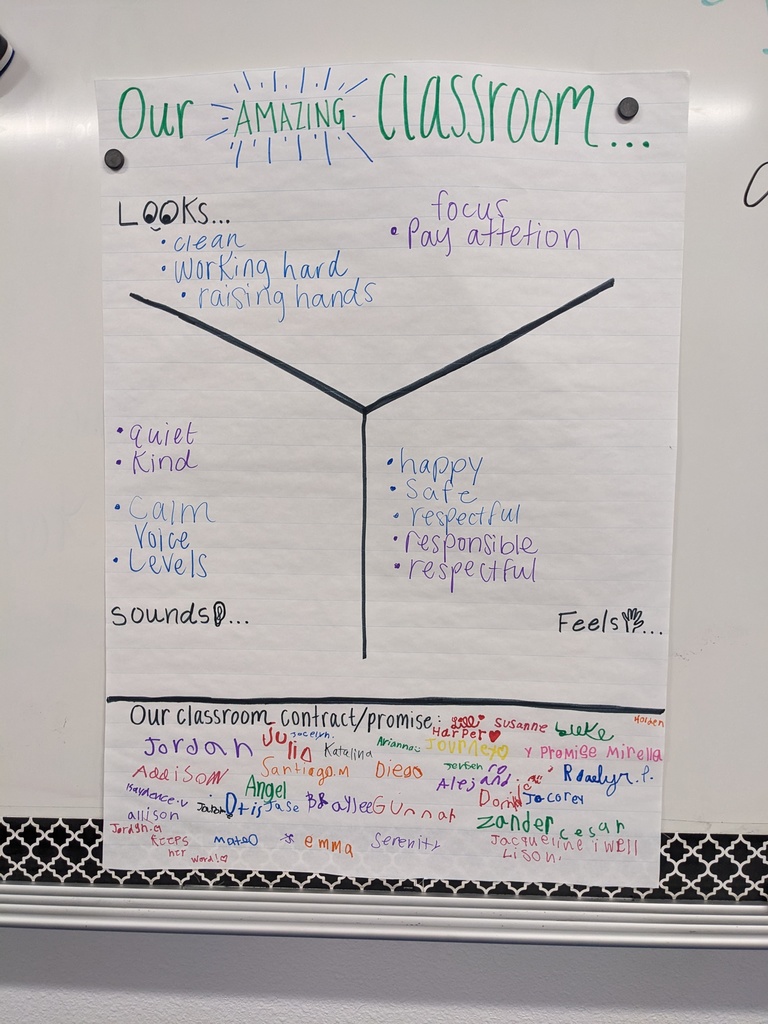 Our AMAZING Classroom...
LOOKS...
• clean
• working hard
• raising hands
focus
• Pay attetion
• quiet
• Kind
• Calm
Voice
• Levels
sounds...
• happy
• Safe
• respectful
• responsible
• respectful
Feels...
Our classroom contract/promise:
susanne
Luke
Holden
HarPer
Jordan
Julia
Jocelyn.
Katalina
Arianna
Journey
Y Promise Mirella
Addison
Santiago.M
Diego
Alejandro
Roselyn.P.
Angel
Otis
Jase
Braylee
Gunnar
Jocorey
allison
zander
cesar
Jordyn.a
Keeps
her
word!
mateo
emma
Serenity
Jacqueline i well
Lison.